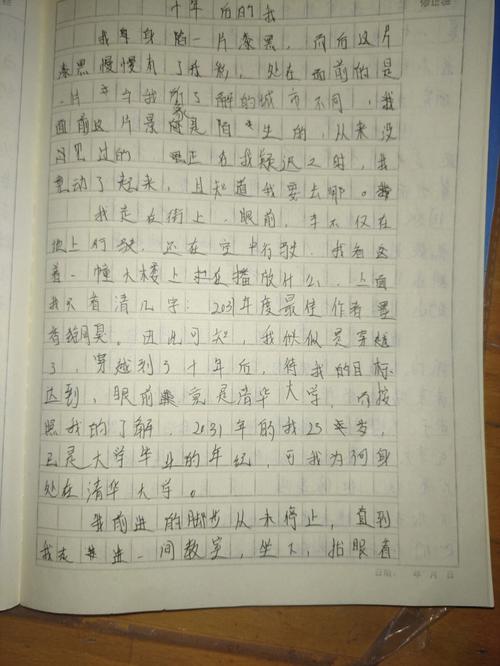 十年后的我
我车身陷一片漆黑，而后这片
漆黑慢慢有了我彩，处在面前的是
一片与我所了解的城市不同，我
面前这片景象是陌生的，从来没
见过的，正在我疑迟之时，我
动了起来，且知道我要去哪。
我走在街上，眼前，车不仅在
地上行驶，还在空中行驶，我看这
着一幢大楼上在播放什么，上面
我只看清几字：2031年度最佳作者
。由此可知，我似似是穿越
了，穿越到了十年后，待我的目标
达到，眼前竟是清华大学，而按
照我的了解，2031年的我25岁，
已是大学毕业的年纪，可我为何身
处在清华大学。
我前进的脚步从未停止，直到
我走进一间教室，坐下，抬眼看
日期： 年 月 日